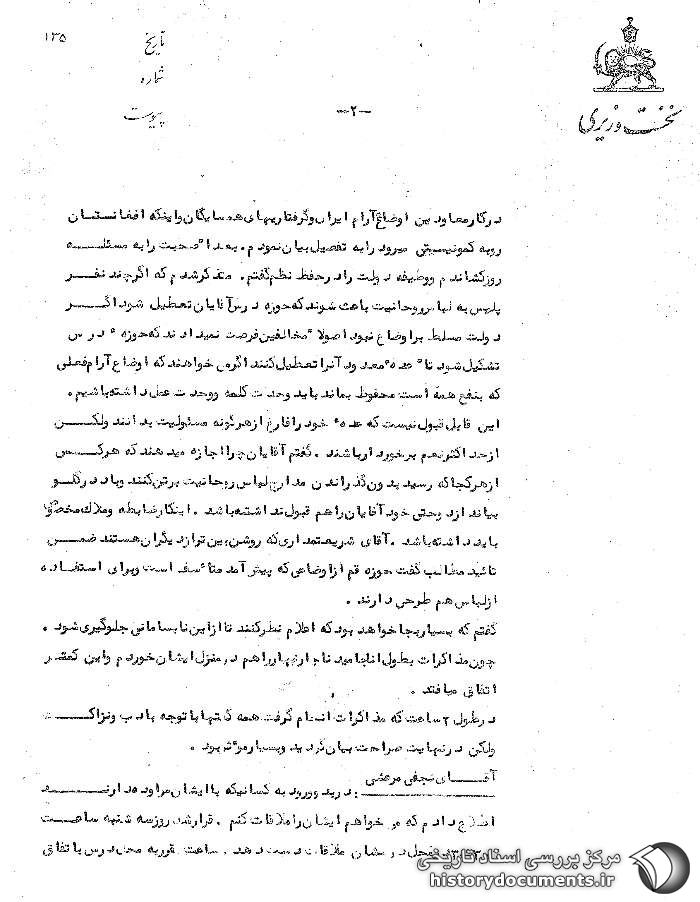 ۱۳۵
تاریخ
شماره
پیوست
نخست وزیری
-۲-
در کار معاود بین اوضاع آرام ایران و گرفتاریهای همسایگان و اینکه افغانستان
رو به کمونیستی میرود را به تفصیل بیان نمودم . بعداً صحبت را به مسئله
روز کشاندم و وظیفه دولت را در حفظ نظم گفتم . متذکر شدم که اگر چند نفر
پلیس به لباس روحانیت باعث شوند که حوزه درس آقایان تعطیل شود اگر
دولت مسلط بر اوضاع نبود اصولاً مخالفین فرصت نمیدادند که حوزه درس
تشکیل شود تا عده معدود آنرا تعطیل کنند اگر می خواهند که اوضاع آرام فعلی
که بنفع همه است محفوظ بماند باید وحدت کلمه و وحدت عمل داشته باشیم .
این قابل قبول نیست که عده خود را فارغ از هرگونه مسئولیت بدانند ولکن
از حداکثر نعم برخوردار باشند . گفتم آقایان چرا اجازه میدهند که هرکس
از هر کجا که رسید بدون گذراندن مدارج لباس روحانیت بر تن کنند و باد در گلو
بیاندازد و حتی خود آقایان را هم قبول نداشته باشد . اینکار ضابطه و ملاک
باید داشته باشد . آقای شریعتمداری که روشن بین تر از دیگران هستند ضمن
تائید مطالب گفت حوزه قم از اوضاعی که پیش آمد متأسف است و برای استفاده
از لباس هم طرحی دارند .
گفتم که بسیار بجا خواهد بود که اعلام نظر کنند تا از این نابسامانی جلوگیری شود .
چون مذاکرات بطول انجامید ناچار نهار را هم در منزل ایشان خوردم و این کمتر
اتفاق میافتد .
در طول ۲ ساعت که مذاکرات انجام گرفت همه گفتنیها با توجه بادب و نزاکت
ولکن در نهایت صراحت بیان گردید و بسیار موثر بود .
آقای نجفی مرعشی
: در بدو ورود به کسانیکه با ایشان مراوده دارند
اطلاع دادم که می خواهم ایشان را ملاقات کنم . قرار شد روز سه شنبه ساعت
در محل درسشان ملاقات دست دهد . ساعت مقرر به محل درس باتفاق
مرکز بررسی اسناد تاریخی
historydocuments.ir